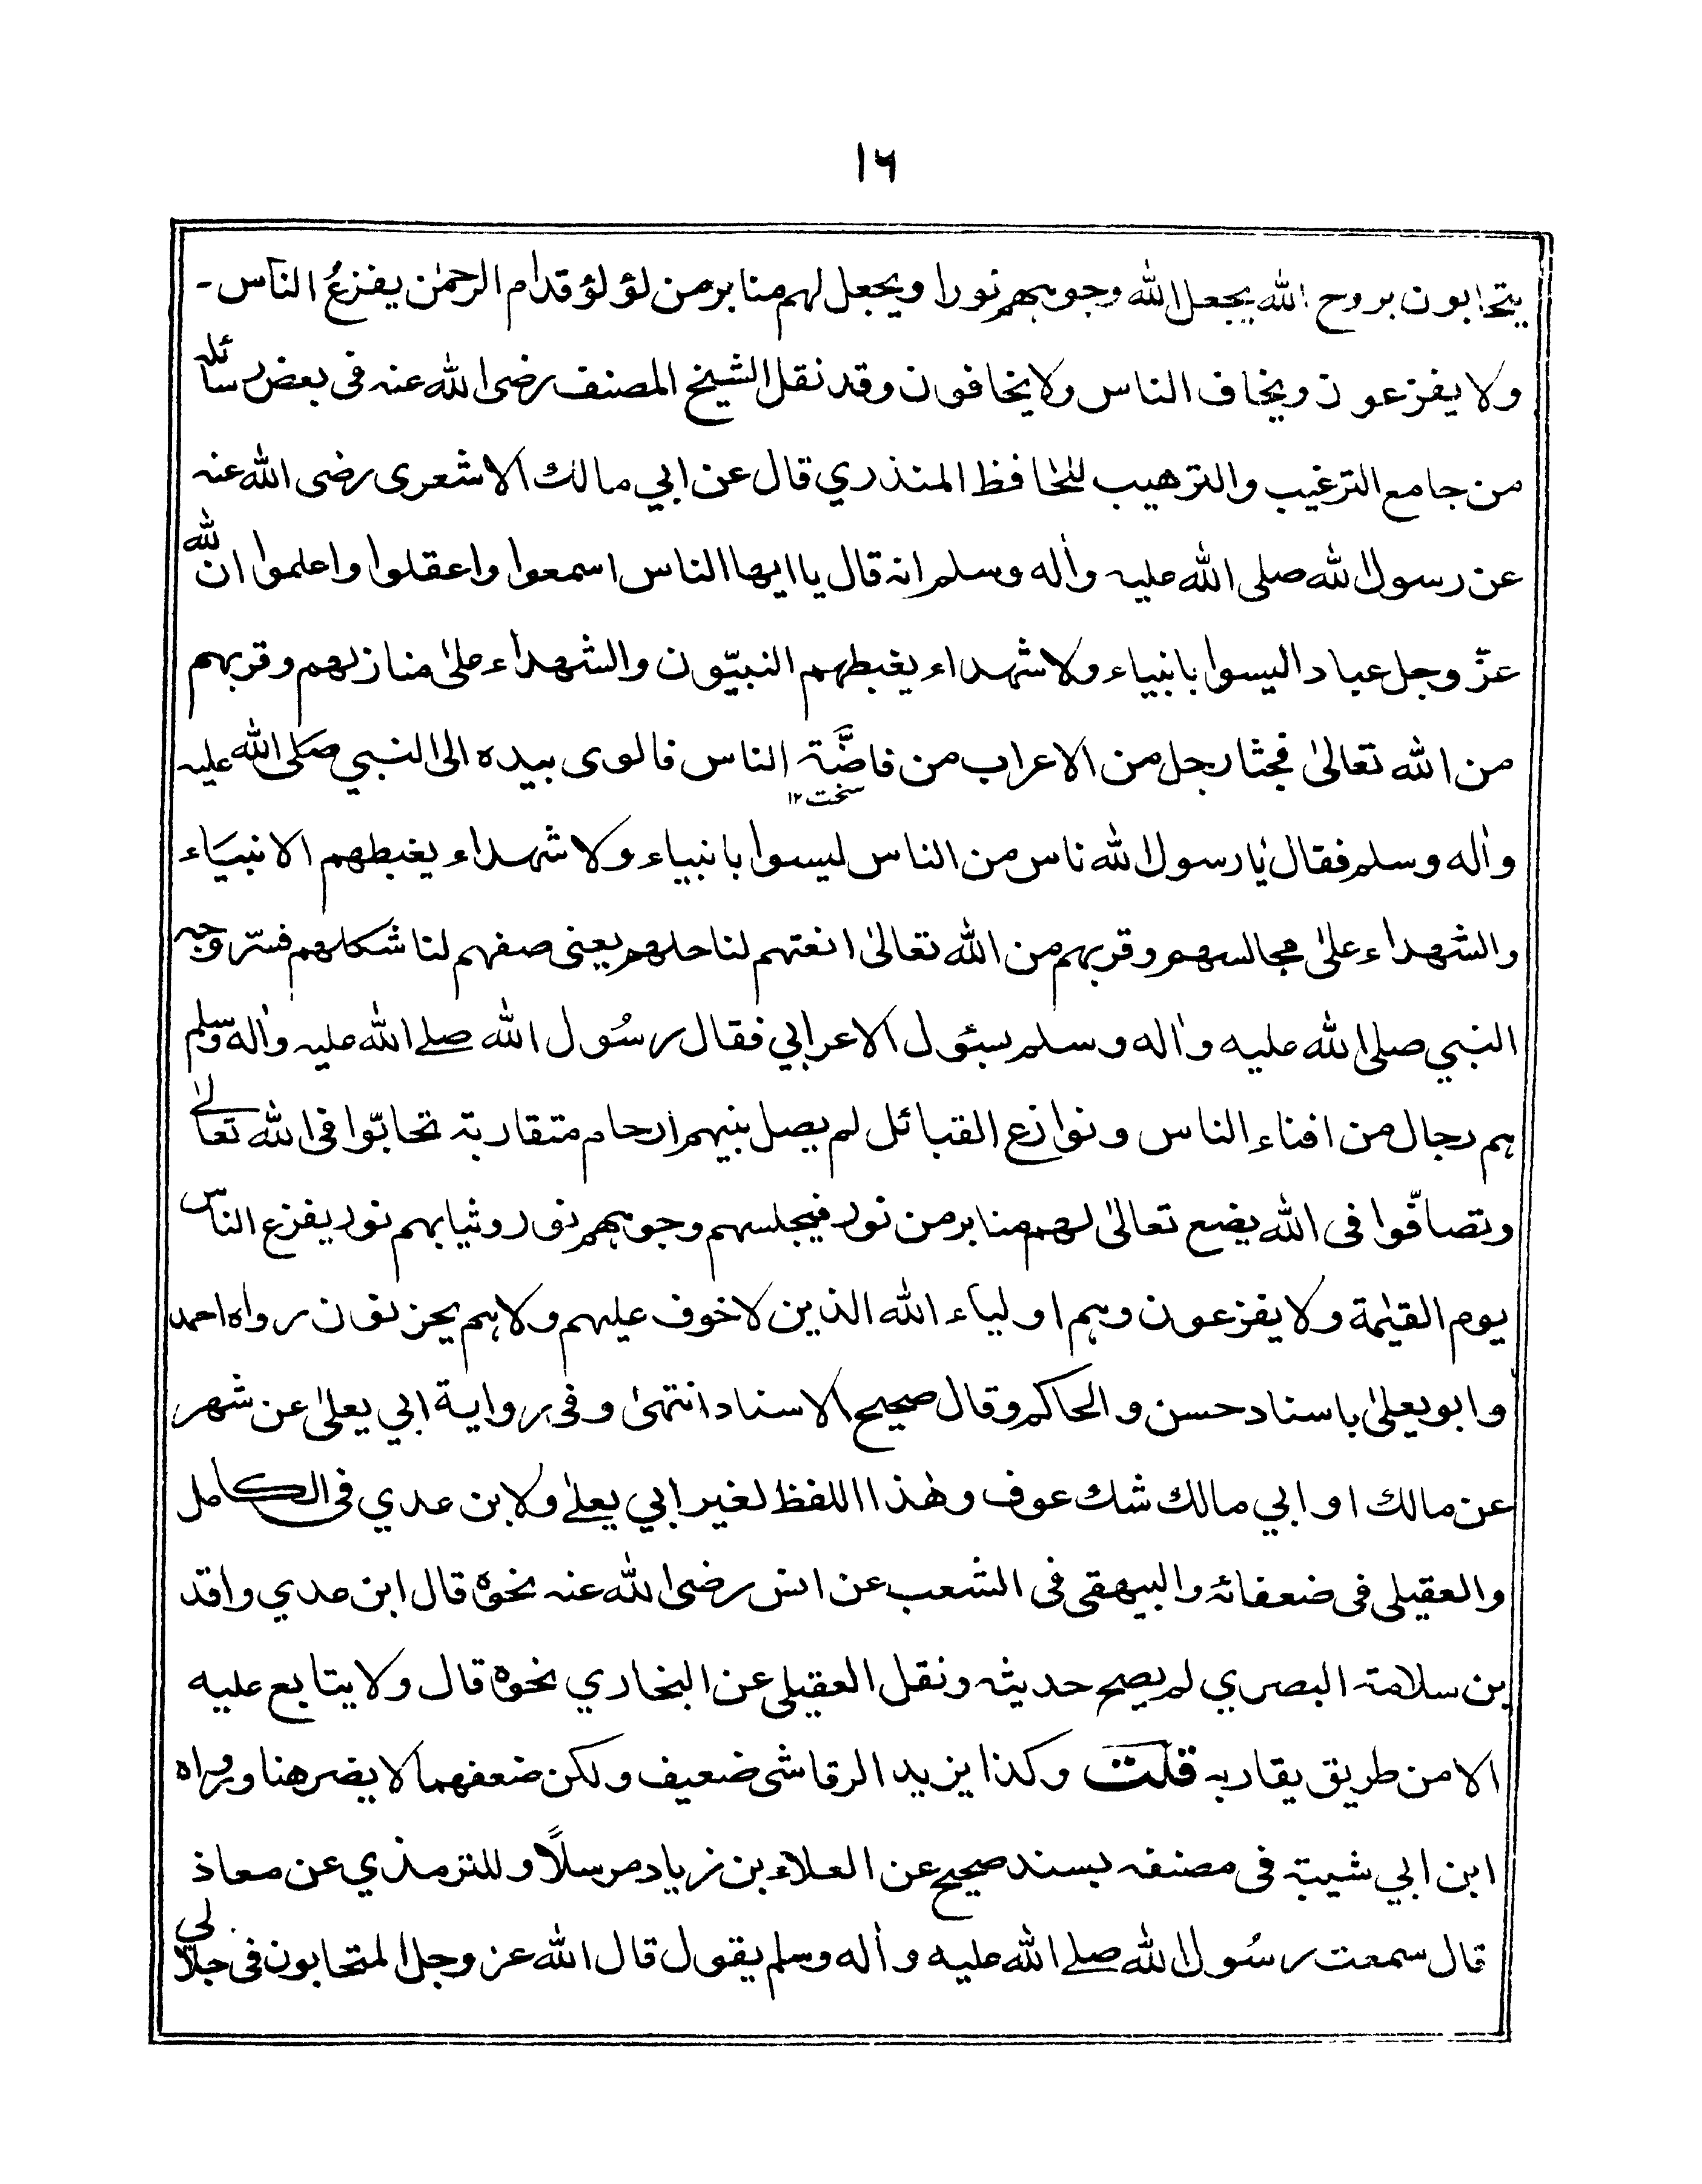 ١٦
يتحابون بروح الله يجعل الله وجوههم نورا ويجعل لهم منابر من لؤلؤ قدام الرحمٰن يفزعُ الناس -
ولا يفزعون ويخاف الناس ولا يخافون وقد نقل الشيخ المصنف رضى الله عنه فى بعض رسائله
من جامع الترغيب والترهيب للحافظ المنذري قال عن ابي مالك الاشعرى رضى الله عنه
عن رسول الله صلى الله عليه واٰله وسلم انه قال يا ايها الناس اسمعوا واعقلوا واعلموا ان لله
عزّ وجل عبادا ليسوا بانبياء ولا شهداء يغبطهم النبيّون والشهداء علىٰ منازلهم وقربهم
من الله تعالىٰ فجثا رجل من الاعراب من قاضَّة الناس فالوى بيده الى النبي صَلى الله عليه
سخت ١٢
واٰله وسلم فقال يا رسول الله ناس من الناس ليسوا بانبياء ولا شهداء يغبطهم الانبيَاء
والشهداء علىٰ مجالسهم وقربهم من الله تعالىٰ انعتهم لنا حلهم يعنى صفهم لنا شكلهم فسّر وجه
النبي صلى الله عليه واٰله وسلم بسئول الاعرابي فقال رسُول الله صلے الله عليه واٰله وسلم
هم رجال من افناء الناس ونوازع القبائل لم يصل بينهم ارحام متقاربة تحابّوا فى الله تعالےٰ
وتصافّوا فى الله يضع تعالىٰ لهم منابر من نور فيجلسهم وجوههم نور وثيابهم نور يفزع الناس
يوم القيٰمة ولا يفزعون وهم اولياء الله الذين لا خوف عليهم ولا هم يحزنون رواه احمد
وابو يعلىٰ باسناد حسن والحاكم وقال صحيح الاسناد انتهىٰ وفى رواية ابي يعلىٰ عن شهر
عن مالك او ابي مالك شك عوف وهٰذا اللفظ لغير ابي يعلےٰ ولابن عدي فى الكامل
والعقيلى فى ضعفائه والبيهقى فى الشعب عن انس رضى الله عنه نحوه قال ابن عدي واقد
بن سلامة البصري لم يصح حديثه ونقل العقيلى عن البخاري نحوه قال ولا يتابع عليه
الا من طريق يقاربه قلت وكذا يزيد الرقاشى ضعيف ولكن ضعفهما لا يضر هنا ورواه
ابن ابي شيبة فى مصنفه بسند صحيح عن العلاء بن زياد مرسلًا وللترمذي عن معاذ
قال سمعت رسُول الله صلے الله عليه واٰله وسلم يقول قال الله عز وجل المتحابون فى جلالي لي